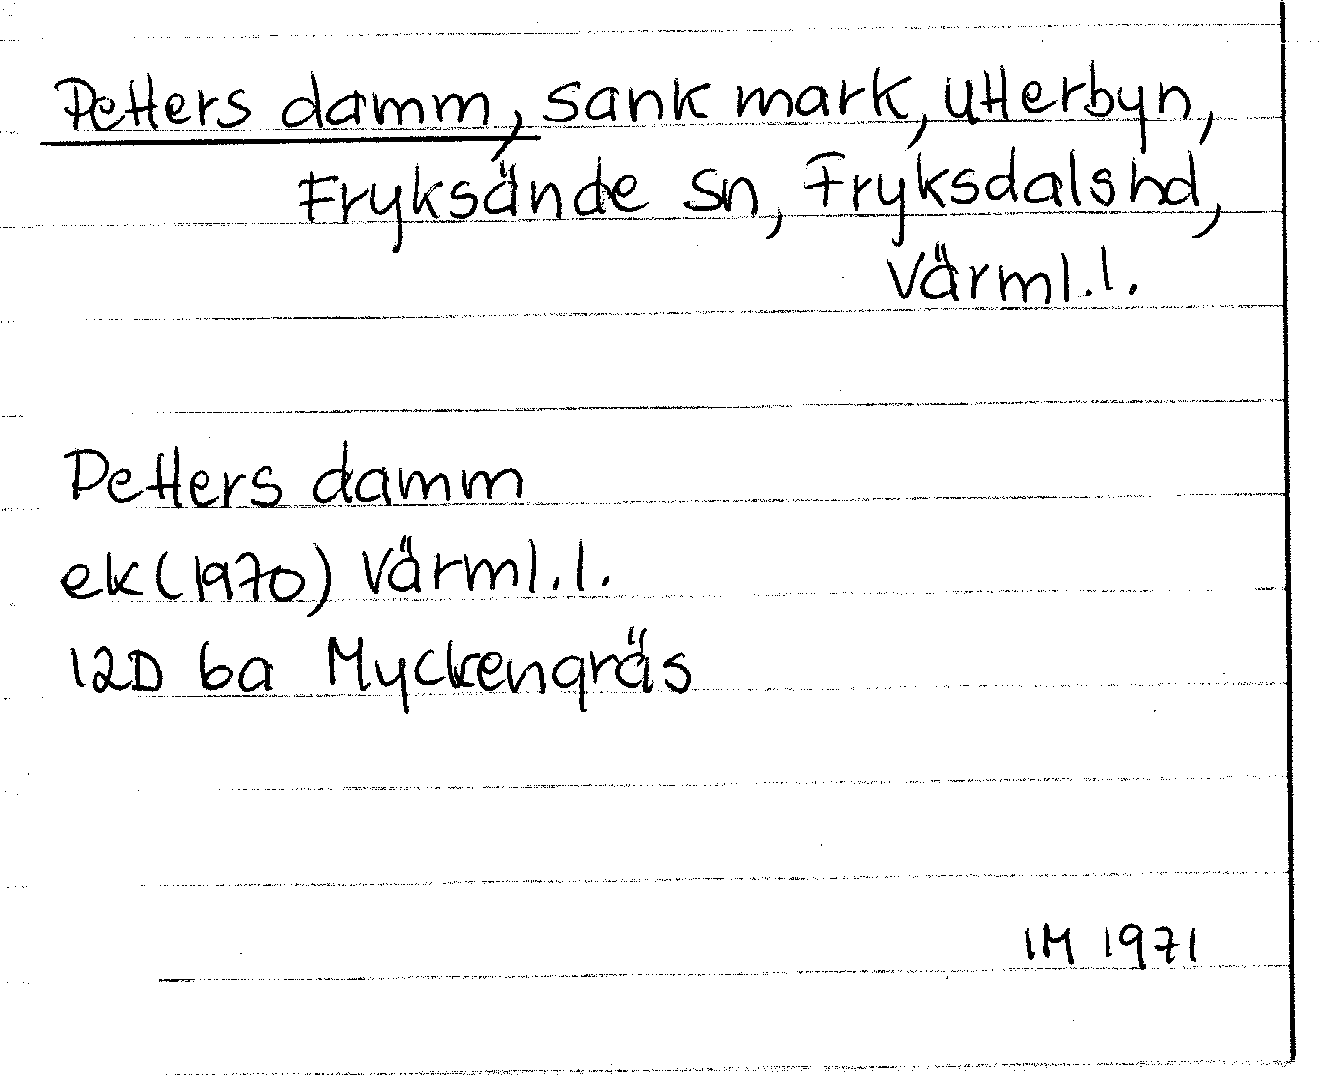 Petters damm, sank mark, Utterbyn,
Fryksände sn, Fryksdals hd,
Värml.l.
Petters damm
ek (1970) Värml.l.
12D 6a Myckengräs
IM 1971